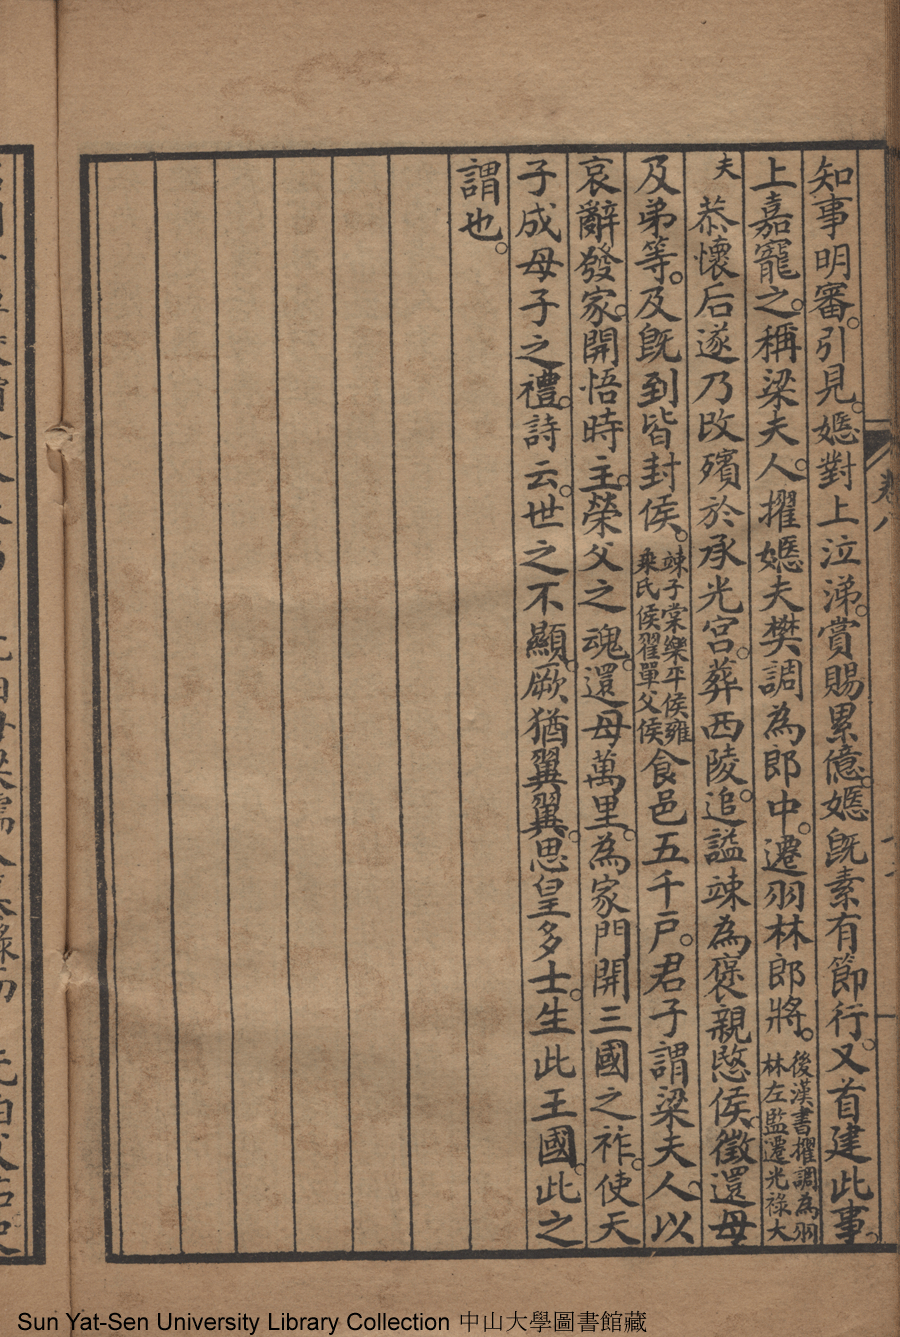 知事明審。引見。嫕對上泣涕。賞賜累億。嫕既素有節行。又首建此事。
上嘉寵之。稱梁夫人。擢嫕夫樊調為郎中。遷羽林郎將。後漢書擢調為羽林左監遷光祿大
夫恭懷后遂乃改殯於承光宮。葬西陵。追謚竦為褒親愍侯。徵還母
及弟等。及既到皆封侯。竦子棠樂平侯雍乘氏侯翟單父侯食邑五千戶。君子謂梁夫人。以
哀辭發家。開悟時主。榮父之魂。還母萬里。為家門開三國之祚。使天
子成母子之禮。詩云。世之不顯。厥猶翼翼。思皇多士。生此王國。此之
謂也。
卷八
Sun Yat-Sen University Library Collection 中山大學圖書館藏